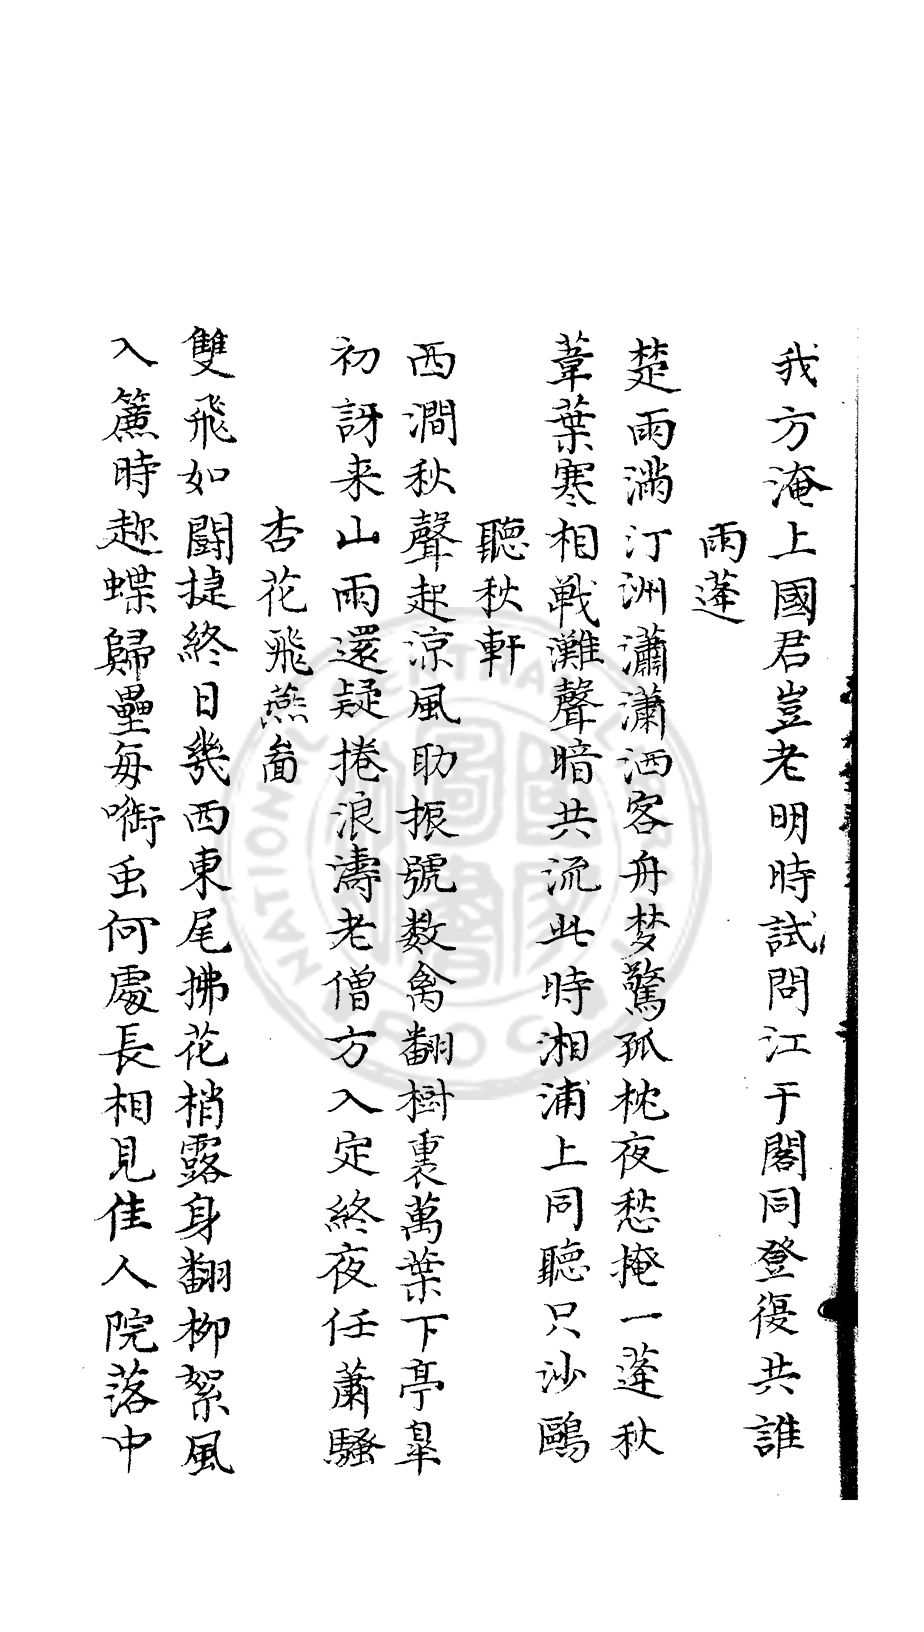 我方淹上國君豈老明時試問江干閣同登復共誰
雨蓬
楚雨滿汀洲瀟瀟洒客舟梦驚孤枕夜愁掩一蓬秋
葦葉寒相戰灘聲暗共流此時湘浦上同聽只沙鷗
聽秋軒
西澗秋聲起涼風助振號数禽翻樹裏萬葉下亭皐
初訝来山雨還疑捲浪濤老僧方入定終夜任蕭騷
杏花飛燕啚
雙飛如鬪捷終日幾西東尾拂花梢露身翻柳絮風
入簾時趂蝶歸壘每啣虫何處長相見佳人院落中
NATIONAL CENTRAL